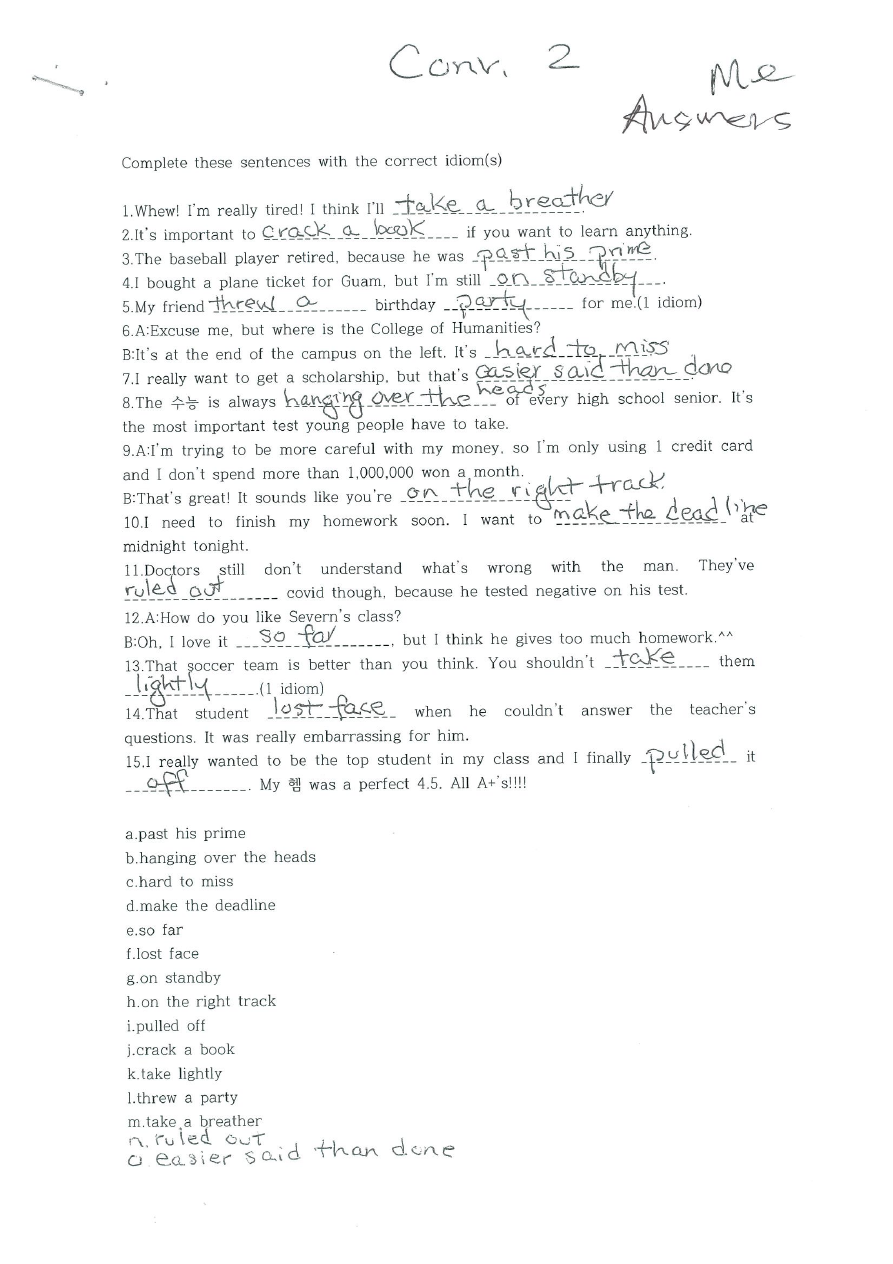 Conv. 2
Me
Answers
Complete these sentences with the correct idiom(s)
1.Whew! I'm really tired! I think I'll take a breather.
2.It's important to crack a book if you want to learn anything.
3.The baseball player retired, because he was past his prime.
4.I bought a plane ticket for Guam, but I'm still on standby.
5.My friend threw a birthday party for me.(1 idiom)
6.A:Excuse me, but where is the College of Humanities?
B:It's at the end of the campus on the left. It's hard to miss.
7.I really want to get a scholarship, but that's easier said than done.
8.The 수능 is always hanging over the heads of every high school senior. It's
the most important test young people have to take.
9.A:I'm trying to be more careful with my money, so I'm only using 1 credit card
and I don't spend more than 1,000,000 won a month.
B:That's great! It sounds like you're on the right track.
10.I need to finish my homework soon. I want to make the deadline at
midnight tonight.
11.Doctors still don't understand what's wrong with the man. They've
ruled out covid though, because he tested negative on his test.
12.A:How do you like Severn's class?
B:Oh, I love it so far, but I think he gives too much homework.^^
13.That soccer team is better than you think. You shouldn't take them
lightly.(1 idiom)
14.That student lost face when he couldn't answer the teacher's
questions. It was really embarrassing for him.
15.I really wanted to be the top student in my class and I finally pulled it
off. My 헴 was a perfect 4.5. All A+'s!!!!
a.past his prime
b.hanging over the heads
c.hard to miss
d.make the deadline
e.so far
f.lost face
g.on standby
h.on the right track
i.pulled off
j.crack a book
k.take lightly
l.threw a party
m.take a breather
n. ruled out
o easier said than done